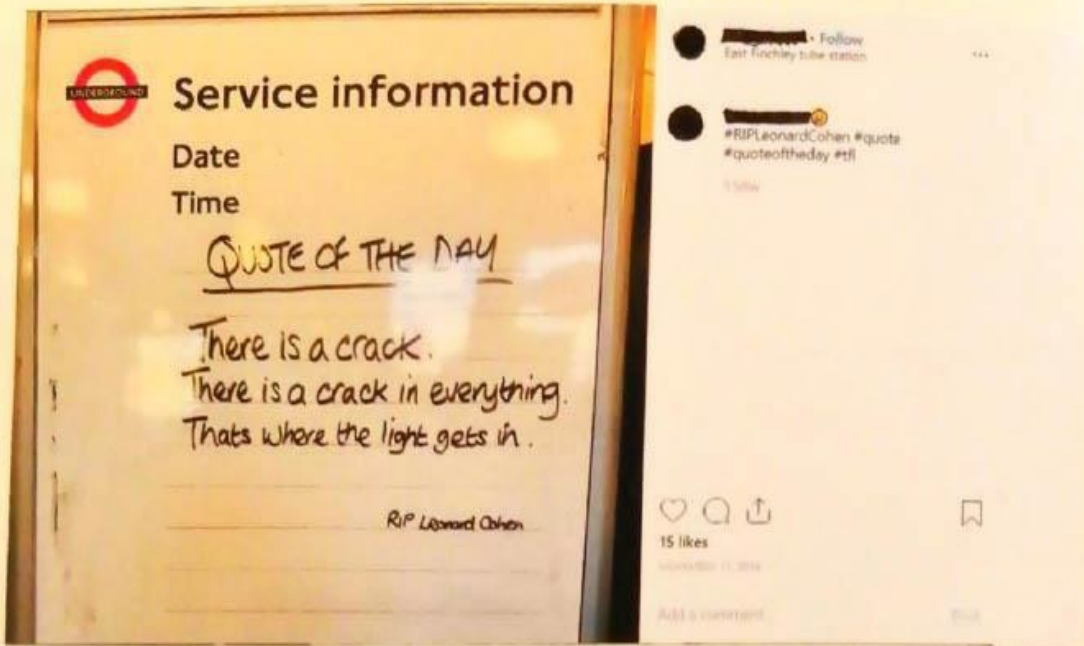 UNDERGROUND
Service information
Date
Time
QUOTE OF THE DAY
There is a crack.
There is a crack in everything.
Thats where the light gets in.
RIP Leonard Cohen
• Follow
East Finchley tube station
#RIPLeonardCohen #quote
#quoteoftheday #tfl
15 likes
Add a comment...